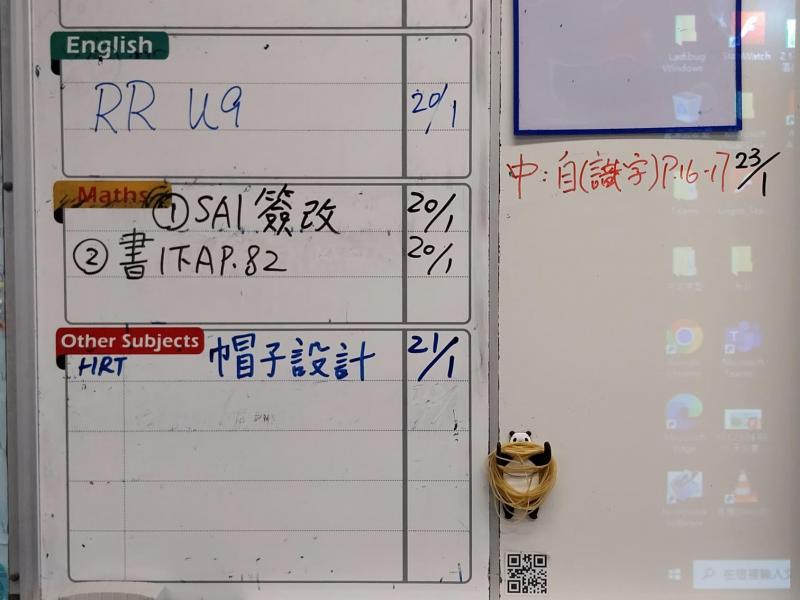 English
RR U9 20/1
Maths
①SA1簽改 20/1
②書1下A P.82 20/1
Other Subjects
HRT 帽子設計 21/1
中:自(識字)P.16-17 23/1
Ladibug
Windows
Microsoft
Edge